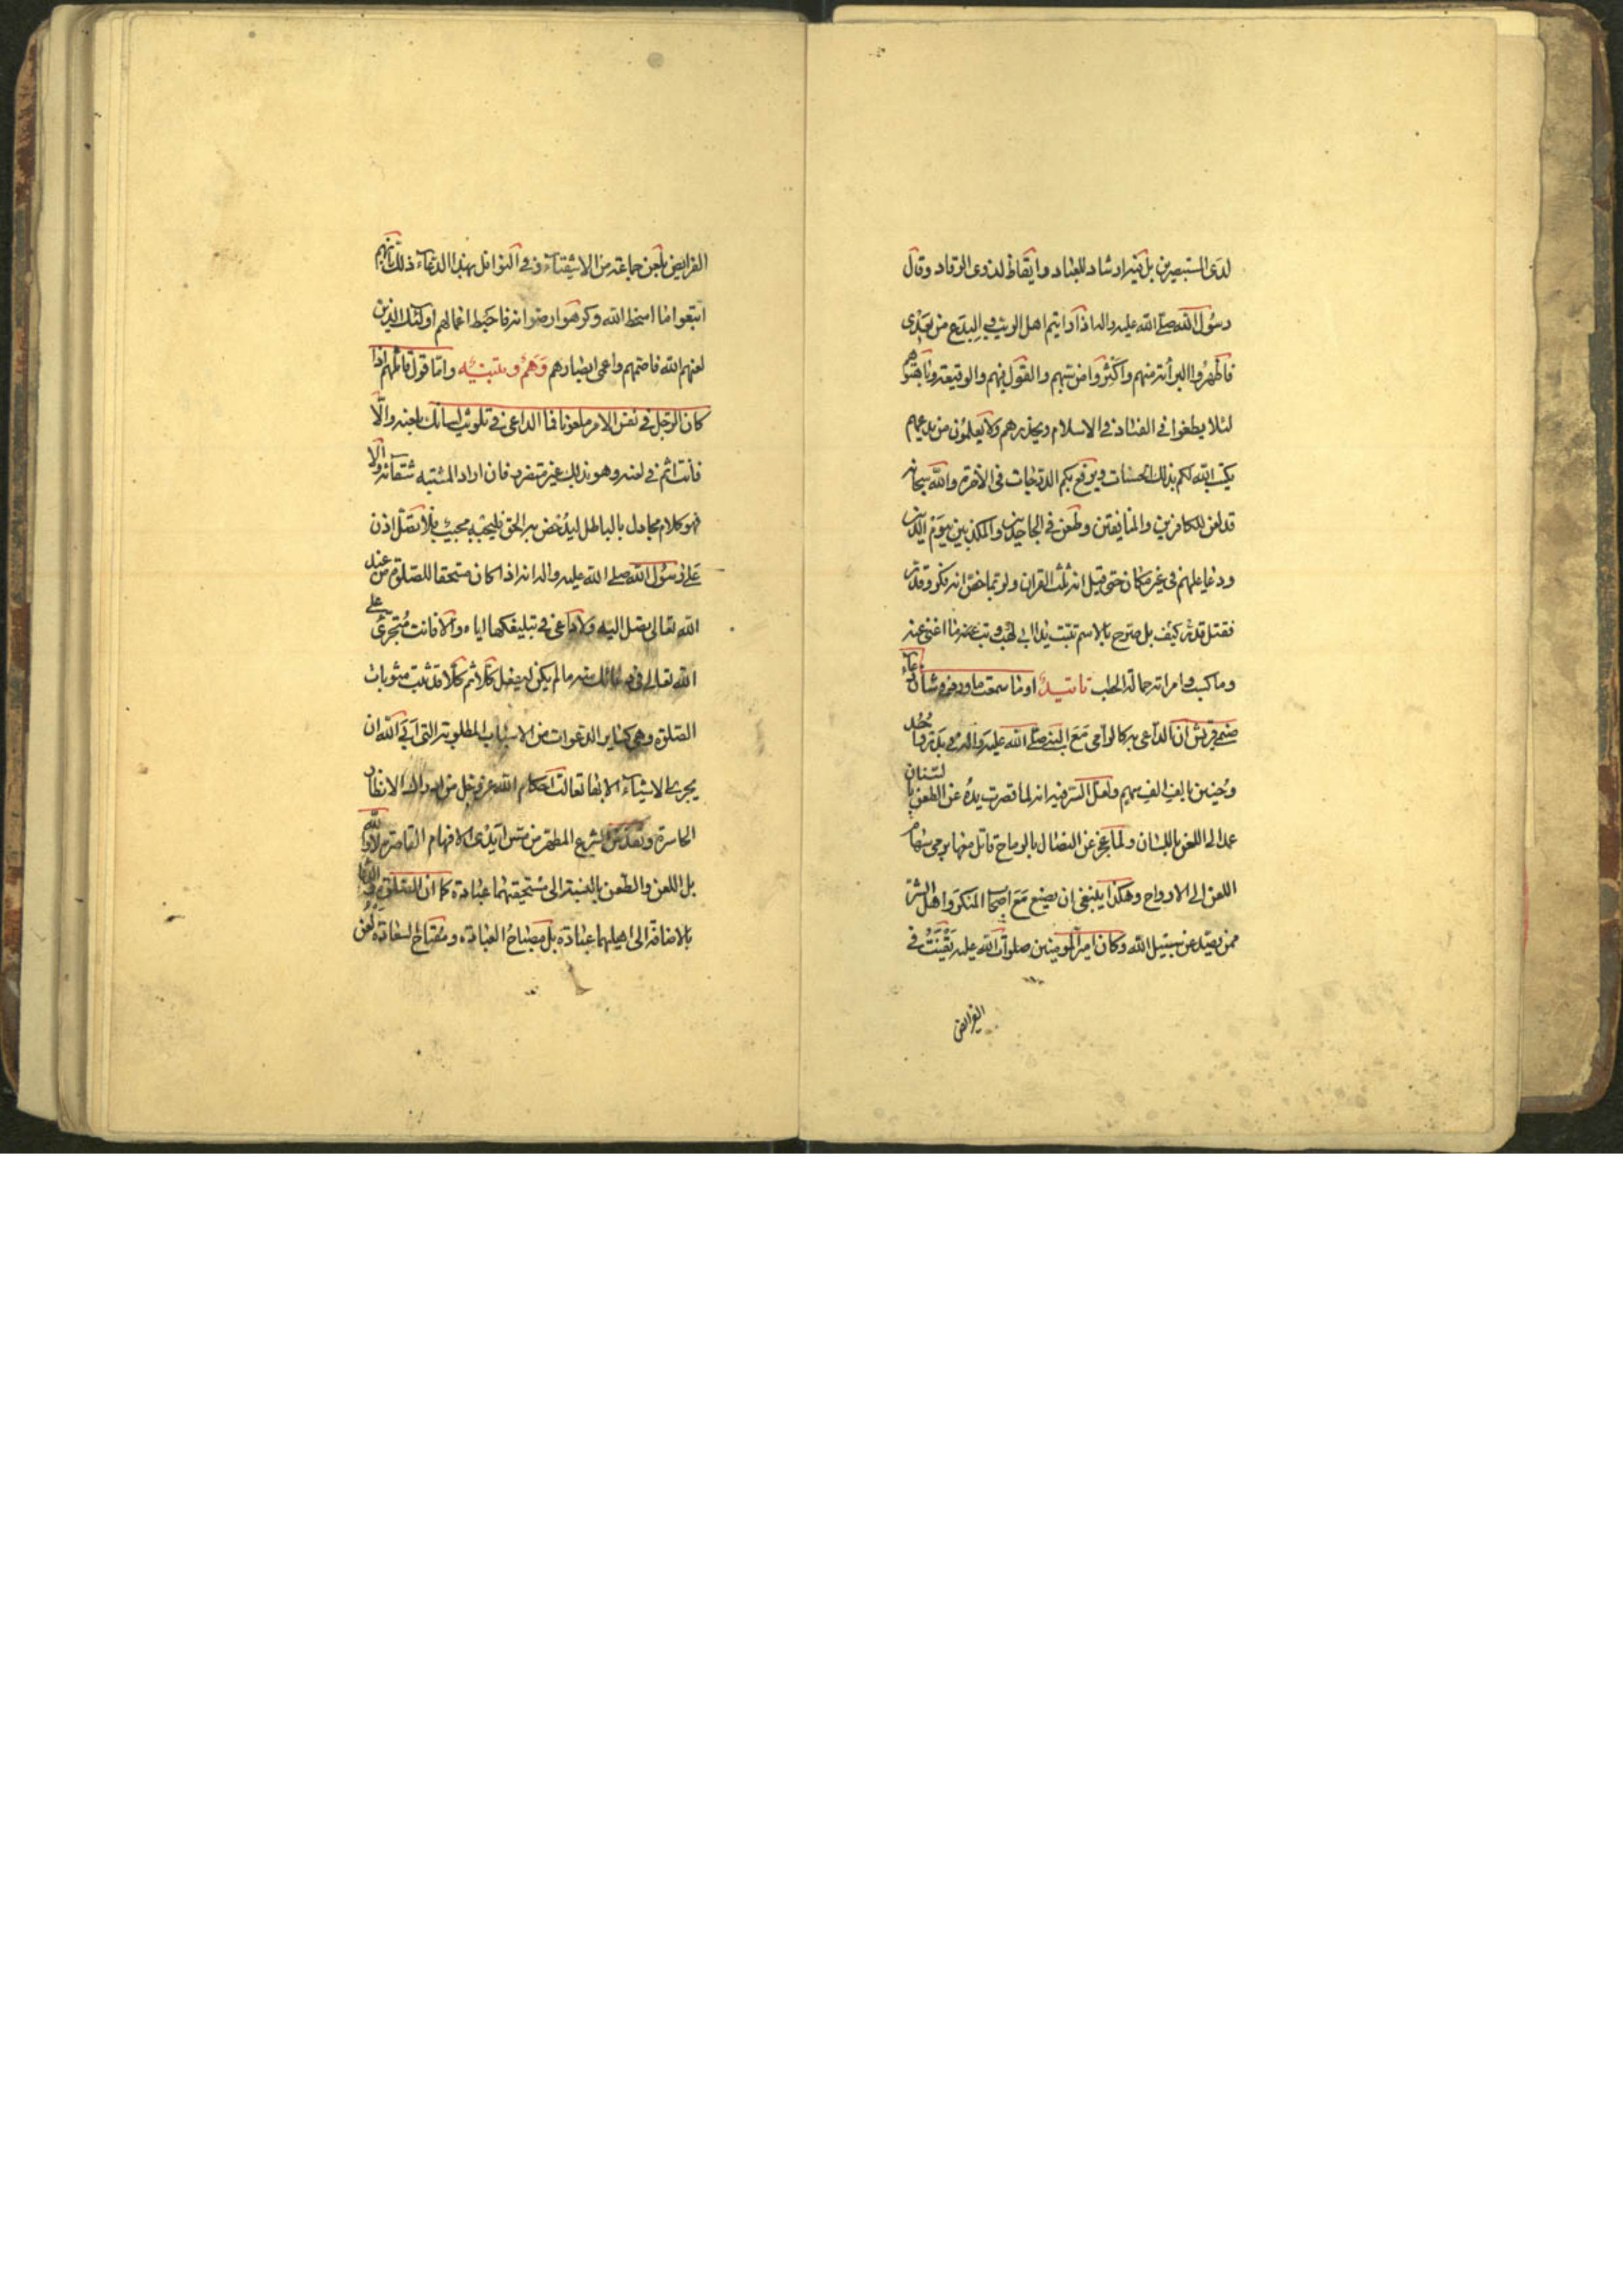 لدى المستبصرين بل فيه ارشاد للعباد وايقاظ لذوى الرقاد وقال
رسول الله صلى الله عليه واله اذا رايتم اهل الريب والبدع من بعدى
فاظهروا البرائة منهم واكثروا من سبهم والقول فيهم والوقيعة وباهتوهم
لئلا يطغوا فى الفساد فى الاسلام ويحذرهم ولا يعلمون من بدعهم
يكتب الله لكم بذلك الحسنات ويرفع بكم الدرجات فى الآخرة والله سبحانه
قد لعن للكافرين والمنافقين وطعن فى الجاحدين والمكذبين بيوم الدين
ودعا عليهم فى غير مكان حتى قيل انه ثلث القران ولربما خص انه فكر وقدر
فقتل قدر كيف بل صرح بالاسم تبت يدا ابى لهب وتب ما اغنى عنه
وما كسب وامراته حمالة الحطب تاييد او ما سمعت ما ورد فى شان دعاء
صنمى قريش ان الداعى به كالرامى مع النبى صلى الله عليه واله فى بدر واحد
وحنين بالف الف سهم ولعل السر فيه انه لما قصرت يده عن الطعن بالسنان
عدل الى اللعن باللسان ولما عجز عن النضال بالرماح قاتل منها برمى سهام
اللعن الى الارواح وهكذا ينبغى ان يصنع مع اصحاب المنكر واهل الشر
ممن يصد عن سبيل الله وكان امير المومنين صلوات الله عليه يقنت فى
الفرائض
الفرايض بلعن جماعة من الاشقياء وفى النوافل بهذا الدعاء ذلك بانهم
اتبعوا ما اسخط الله وكرهوا رضوانه فاحبط اعمالهم اولئك الذين
لعنهم الله فاصمهم واعمى ابصارهم وهم وتنبيه واما قول قائلهم اذا
كان الرجل فى نفس الامر ملعونا فما الداعى فى تلويث لسانك بلعنه والا
فانت اثم فى لعنه وهو بذلك غير متضرر فان اراد المشتبه شقائه والا
فهو كلام مجادل بالباطل ليدحض به الحق فليجبه مجيب فلا تصل اذن
على رسول الله صلى الله عليه واله انه اذا كان مستحقا للصلوة من عند
الله تعالى يصل اليه ولا داعى فى تبليغكها اياه والا فانت متجرئ على
الله تعالى فى سائلك منه ما لم يكن ليفعل كلا ثم كلا قد ثبت مثوبات
الصلوة وهى كساير الدعوات من الاسباب المطلوبة التى ابى الله ان
يجرى الاشياء الا بها تعالت احكام الله عز وجل من ادراك الانظار
الحاسرة وتقدس الشرع المطهر من مس ايدى الافهام القاصرة لا والله
بل اللعن والطعن بالنسبة الى مستحقيهما عبادة كما ان الصلوة والثنا
بالاضافة الى اهليهما عبادة بل مصباح العبادة ومفتاح السعادة لعن